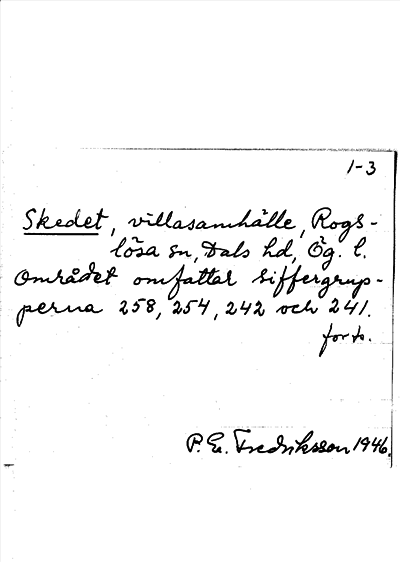 1-3
Skedet, villasamhälle, Rogs-
lösa sn, Dals hd, Ög. l.
Området omfattar siffergrup-
perna 258, 254, 242 och 241.
forts.
P. E. Fredriksson 1946.